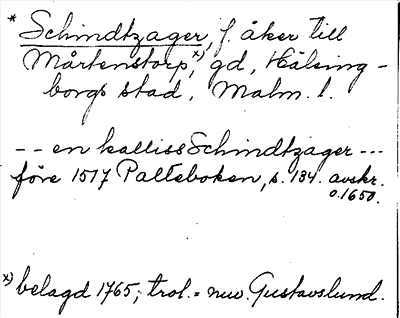 * Schindtzager, f. åker till
Mårtenstorp,x) gd, Hälsing-
borgs stad, Malm. l.
-- en kalliss Schindtzager ---
före 1517 Palteboken, s. 134. avskr.
o. 1650.
x) belagd 1765; trol. = nuv. Gustavslund.